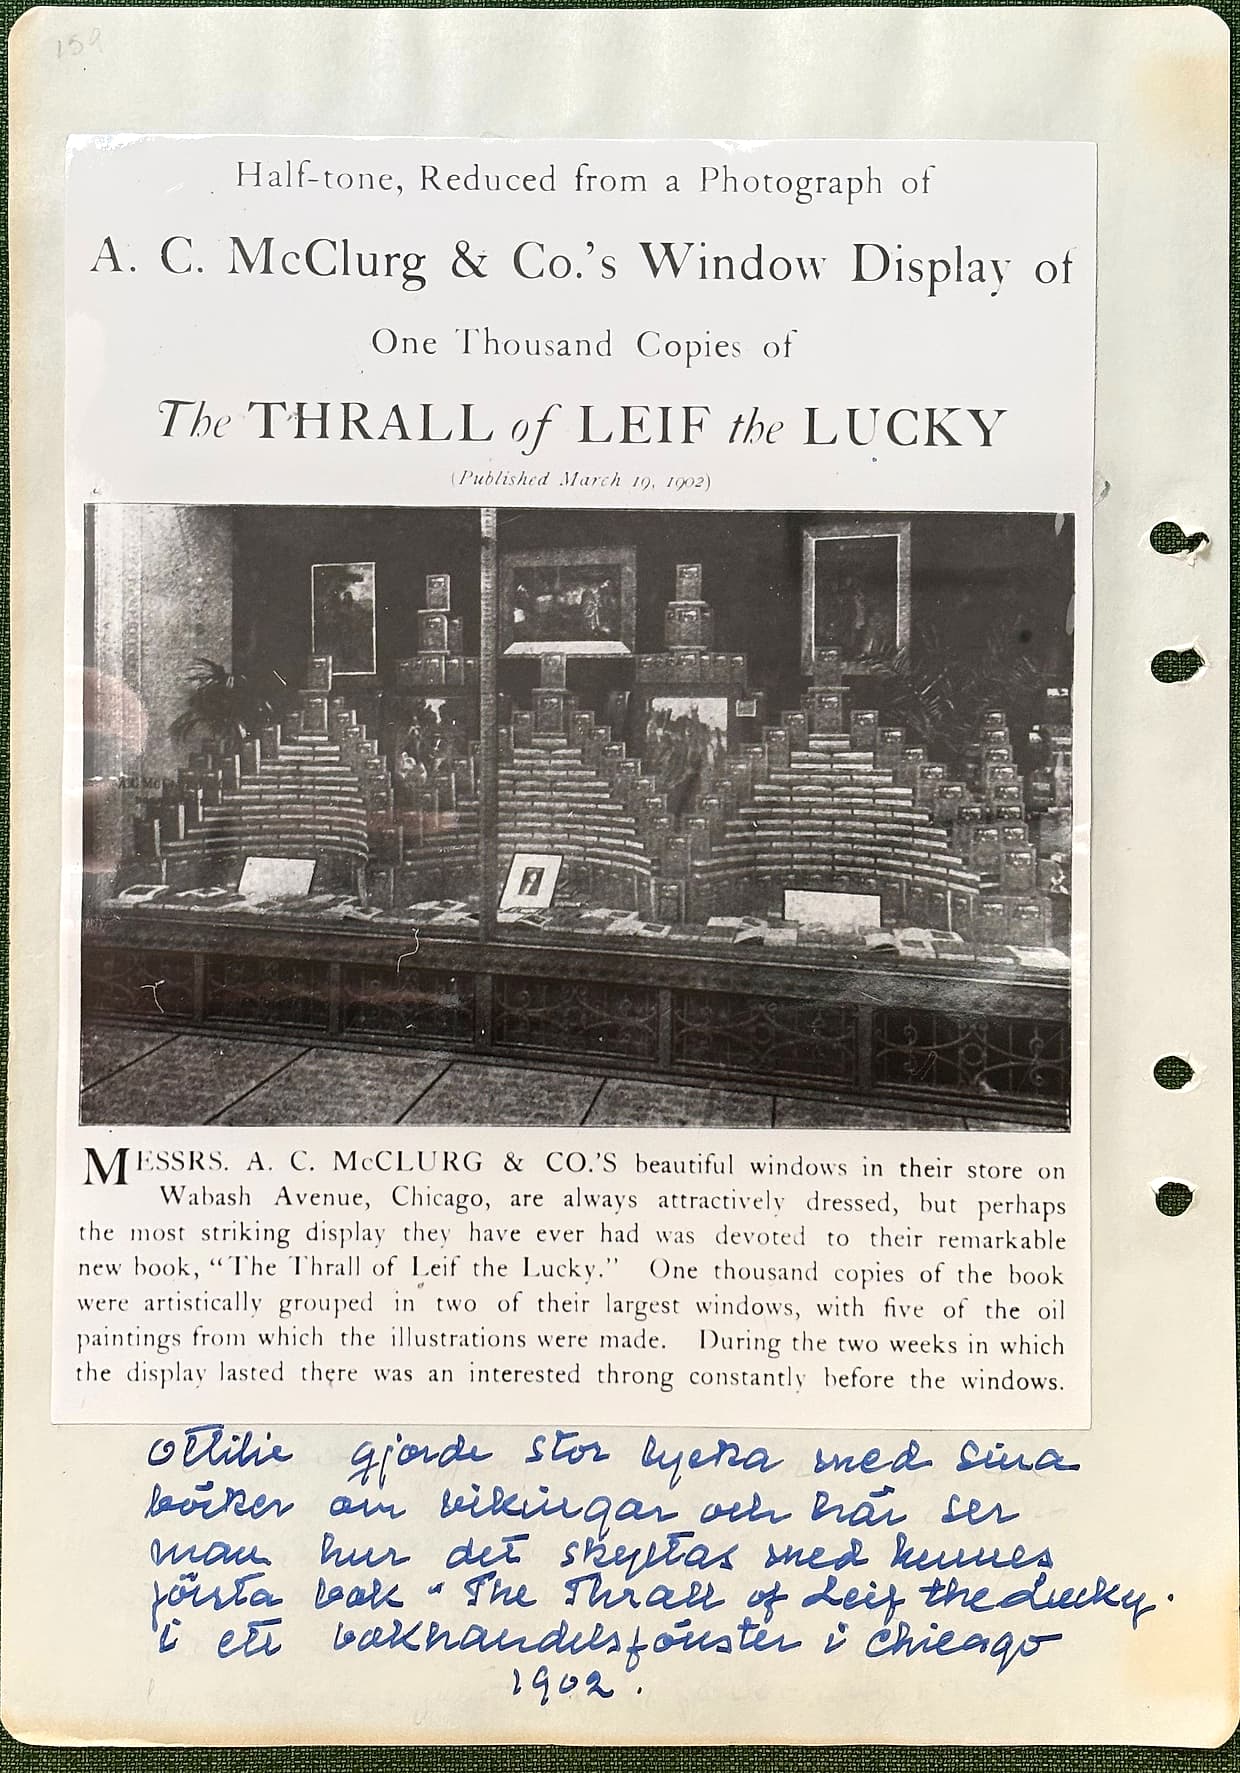 159
Half-tone, Reduced from a Photograph of
A. C. McClurg & Co.'s Window Display of
One Thousand Copies of
The THRALL of LEIF the LUCKY
(Published March 19, 1902)
MESSRS. A. C. McCLURG & CO.'S beautiful windows in their store on
Wabash Avenue, Chicago, are always attractively dressed, but perhaps
the most striking display they have ever had was devoted to their remarkable
new book, "The Thrall of Leif the Lucky." One thousand copies of the book
were artistically grouped in two of their largest windows, with five of the oil
paintings from which the illustrations were made. During the two weeks in which
the display lasted there was an interested throng constantly before the windows.
Ottilie gjorde stor lycka med sina
böcker om vikingar och här ser
man hur det skyltas med hennes
första bok "The Thrall of Leif the Lucky.
i ett bokhandelsfönster i Chicago
1902.